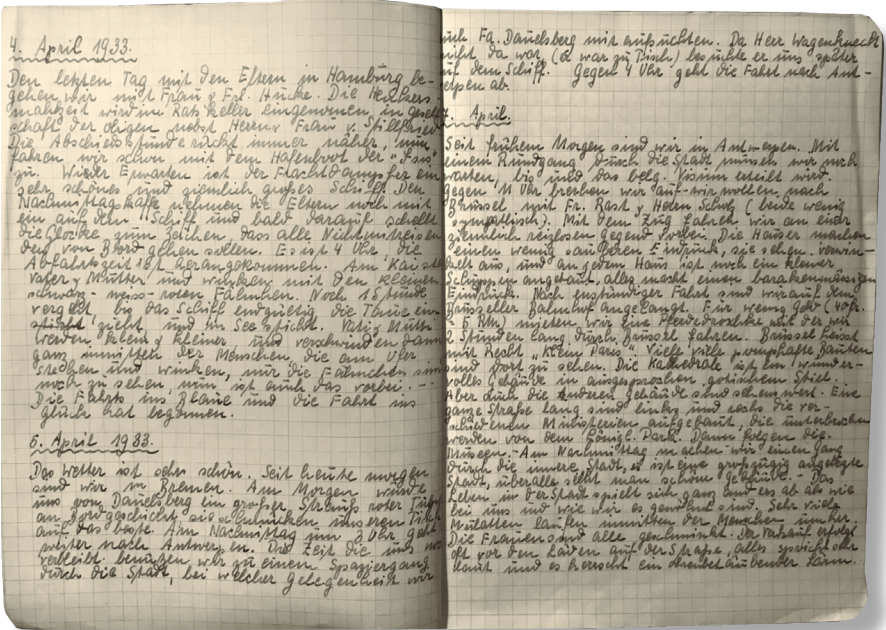 4. April 1933.
Den letzten Tag mit den Eltern in Hamburg be-
gehen wir mit Frau & Frl. Hucke. Die Henkers-
mahlzeit wird im Ratskeller eingenommen, in gesell-
schaft der obigen nebst Herrn & Frau v. Stillfried.
Die Abschiedsstunde rückt immer näher, nun
fahren wir schon mit dem Hafenboot der
zu. Wieder Erwarten ist der Frachtdampfer ein
sehr schönes und ziemlich großes Schiff. Den
Nachmittagskaffe nehmen die Eltern noch mit
ein auf dem Schiff und bald darauf schellt
die Glocke zum Zeichen, dass alle Nichtmitreisen-
den von Bord gehen sollen. Es ist 4 Uhr, die
Abfahrtszeit ist herangekommen. Am Kai steh
Vater & Mutter und winken mit den kleinen
schwarz-weiss-roten Fähnchen. Noch 1 Stunde
vergeht, bis das Schiff endgültig die Taue ein-
zieht und in See sticht. Vati & Mutti
werden klein & kleiner, und verschwinden dann
ganz inmitten der Menschen, die am Ufer
stehen und winken, nur die Fähnchen sin
noch zu sehen, nun ist auch das vorbei. --
Die Fahrt ins Blaue und die Fahrt ins
Glück hat begonnen.
5. April 1933.
Das Wetter ist sehr schön. Seit heute morgen
sind wir in Bremen. Am Morgen wurde
uns von Dauelsberg ein großer Strauß roter Tulpen
an Bord geschickt, sie schmücken unseren Tisch
auf das beste. Am Nachmittag um 5 Uhr geht
weiter nach Antwerpen. Die Zeit die uns noch
verbleibt benutzen wir zu einen Spaziergang
durch die Stadt, bei welcher Gelegenheit wir
auch Fa. Dauelsberg mit aufsuchten. Da Herr Wagenknecht
nicht da war, (er war zu Tisch) besuchte er uns später
auf dem Schiff. Gegen 4 Uhr geht die Fahrt nach Ant-
werpen ab.
7. April.
Seit frühem Morgen sind wir in Antwerpen. Mit
einem Rundgang durch die Stadt müssen wir noch
warten, bis uns das belg. Visum erteilt wird.
gegen 11 Uhr brechen wir auf - wir wollen nach
Brüssel mit Fr. Rast & Herrn Scholz (beide wenig
sympathisch). Mit dem Zug fahren wir an einer
ziemlich reizlosen gegend vorbei. Die Häuser machen
einen wenig sauberen Eindruck, sie sehen verwin-
kelt aus, und an jedem Haus ist noch ein kleiner
Schuppen angebaut, alles macht einen barackenmässigen
Eindruck. Nach einstündiger Fahrt sind wir auf dem
Brüsseler Bahnhof angelangt. Für wenig Geld (40 fr.
= 5 RM) mieten wir eine Pferdedroschke mit der wir
2 Stunden lang durch Brüssel fahren. Brüssel heisst
mit Recht "Klein Paris". Viele viele prunkhafte Bauten
sind dort zu sehen. Die Kathedrale ist ein wunder-
volles Gebäude in ausgesprochen gotischem Stiel.
Aber auch die anderen Gebäude sind sehenswert. Eine
ganze Straße lang sind links und rechts die ver-
schiedenen Ministerien aufgebaut, die unterbrochen
werden von dem Königl. Park. Dann folgen die
Museen. - Am Nachmittag machen wir einen Gang
durch die innere Stadt, es ist eine großzügig angelegte
Stadt, überalle sieht man schöne Gebäude. - Das
Leben in der Stadt spielt sich ganz anders ab als wie
bei uns und wie wir es gewöhnt sind. Sehr viele
Mulatten laufen inmitten der Menschen umher.
Die Frauen sind alle geschminkt. Der Verkauf erfolgt
oft vor den Läden auf der Straße, alles spricht sehr
laut und es herrscht ein ohrenbetäubender Lärm.